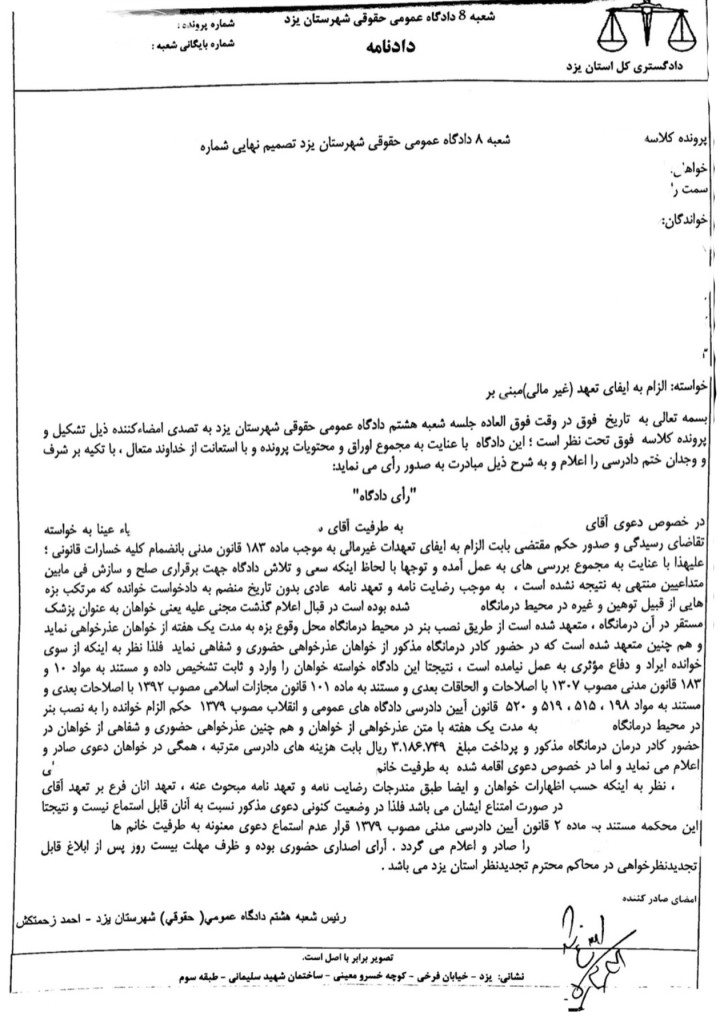 شعبه 8 دادگاه عمومی حقوقی شهرستان یزد
دادنامه
شماره پرونده :
شماره بایگانی شعبه :
دادگستری کل استان یزد
پرونده کلاسه شعبه ۸ دادگاه عمومی حقوقی شهرستان یزد تصمیم نهایی شماره
خواهان
سمت
خواندگان:
خواسته: الزام به ایفای تعهد (غیر مالی)مبنی بر
بسمه تعالی به تاریخ فوق در وقت فوق العاده جلسه شعبه هشتم دادگاه عمومی حقوقی شهرستان یزد به تصدی امضاءکننده ذیل تشکیل و
پرونده کلاسه فوق تحت نظر است ؛ این دادگاه با عنایت به مجموع اوراق و محتویات پرونده و با استعانت از خداوند متعال ، با تکیه بر شرف
و وجدان ختم دادرسی را اعلام و به شرح ذیل مبادرت به صدور رأی می نماید:
"رأی دادگاه"
در خصوص دعوی آقای به طرفیت آقای عینا به خواسته
تقاضای رسیدگی و صدور حکم مقتضی بابت الزام به ایفای تعهدات غیرمالی به موجب ماده ۱۸۳ قانون مدنی بانضمام کلیه خسارات قانونی ؛
علیهذا با عنایت به مجموع بررسی های به عمل آمده و توجها با لحاظ اینکه سعی و تلاش دادگاه جهت برقراری صلح و سازش فی مابین
متداعیین منتهی به نتیجه نشده است ، به موجب رضایت نامه و تعهد نامه عادی بدون تاریخ منضم به دادخواست خوانده که مرتکب بزه
هایی از قبیل توهین و غیره در محیط درمانگاه شده بوده است در قبال اعلام گذشت مجنی علیه یعنی خواهان به عنوان پزشک
مستقر در آن درمانگاه ، متعهد شده است از طریق نصب بنر در محیط درمانگاه محل وقوع بزه به مدت یک هفته از خواهان عذرخواهی نماید
و هم چنین متعهد شده است که در حضور کادر درمانگاه مذکور از خواهان عذرخواهی حضوری و شفاهی نماید فلذا نظر به اینکه از سوی
خوانده ایراد و دفاع مؤثری به عمل نیامده است ، نتیجتا این دادگاه خواسته خواهان را وارد و ثابت تشخیص داده و مستند به مواد ۱۰ و
۱۸۳ قانون مدنی مصوب ۱۳۰۷ با اصلاحات و الحاقات بعدی و مستند به ماده ۱۰۱ قانون مجازات اسلامی مصوب ۱۳۹۲ با اصلاحات بعدی و
مستند به مواد ۱۹۸ ، ۵۱۵ ، ۵۱۹ و ۵۲۰ قانون آیین دادرسی دادگاه های عمومی و انقلاب مصوب ۱۳۷۹ حکم الزام خوانده را به نصب بنر
در محیط درمانگاه به مدت یک هفته با متن عذرخواهی از خواهان و هم چنین عذرخواهی حضوری و شفاهی از خواهان در
حضور کادر درمان درمانگاه مذکور و پرداخت مبلغ ۳.۱۸۶.۷۴۹ ریال بابت هزینه های دادرسی مترتبه ، همگی در خواهان دعوی صادر و
اعلام می نماید و اما در خصوص دعوی اقامه شده به طرفیت خانم
، نظر به اینکه حسب اظهارات خواهان و ایضا طبق مندرجات رضایت نامه و تعهد نامه مبحوث عنه ، تعهد انان فرع بر تعهد آقای
در صورت امتناع ایشان می باشد فلذا در وضعیت کنونی دعوی مذکور نسبت به آنان قابل استماع نیست و نتیجتا
این محکمه مستند به ماده ۲ قانون آیین دادرسی مدنی مصوب ۱۳۷۹ قرار عدم استماع دعوی معنونه به طرفیت خانم ها
را صادر و اعلام می گردد . آرای اصداری حضوری بوده و ظرف مهلت بیست روز پس از ابلاغ قابل
تجدیدنظرخواهی در محاکم محترم تجدیدنظر استان یزد می باشد .
امضای صادر کننده
رئیس شعبه هشتم دادگاه عمومي( حقوقي) شهرستان یزد - احمد زحمتکش
تصویر برابر با اصل است.
نشانی: یزد - خیابان فرخی - کوچه خسرو معینی - ساختمان شهید سلیمانی - طبقه سوم